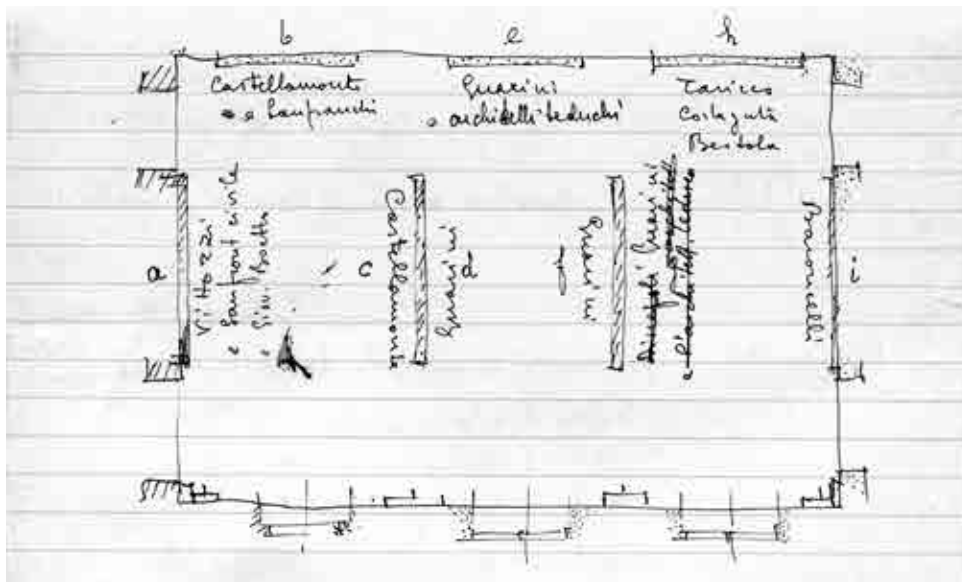 b
e
h
Castellamonte
e Lanfranchi
Guarini
e architetti teduchi
Taricco
Costaguta
Bertola
a
Vittozzi
e Sanfront civile
e Giov. Boetto
c
Castellamonte
Guarini
d
Guarini
Discepoli Guarini
Baroncelli
i